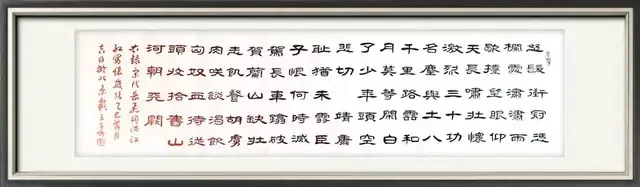 怒髮衝冠憑
欄處瀟瀟雨
歇擡望眼仰
天長嘯壯懷
激烈三十功
名塵與土八
千里路雲和
月莫等閒白
了少年頭空
悲切 靖康
耻猶未雪臣
子恨何時滅
駕長車踏破
賀蘭山缺壯
志飢餐胡虜
肉笑談渴飲
匈奴血待從
頭收拾舊山
河朝天闕
錄宋代岳飛詞滿江
紅 乙巳 月
吉日於北京